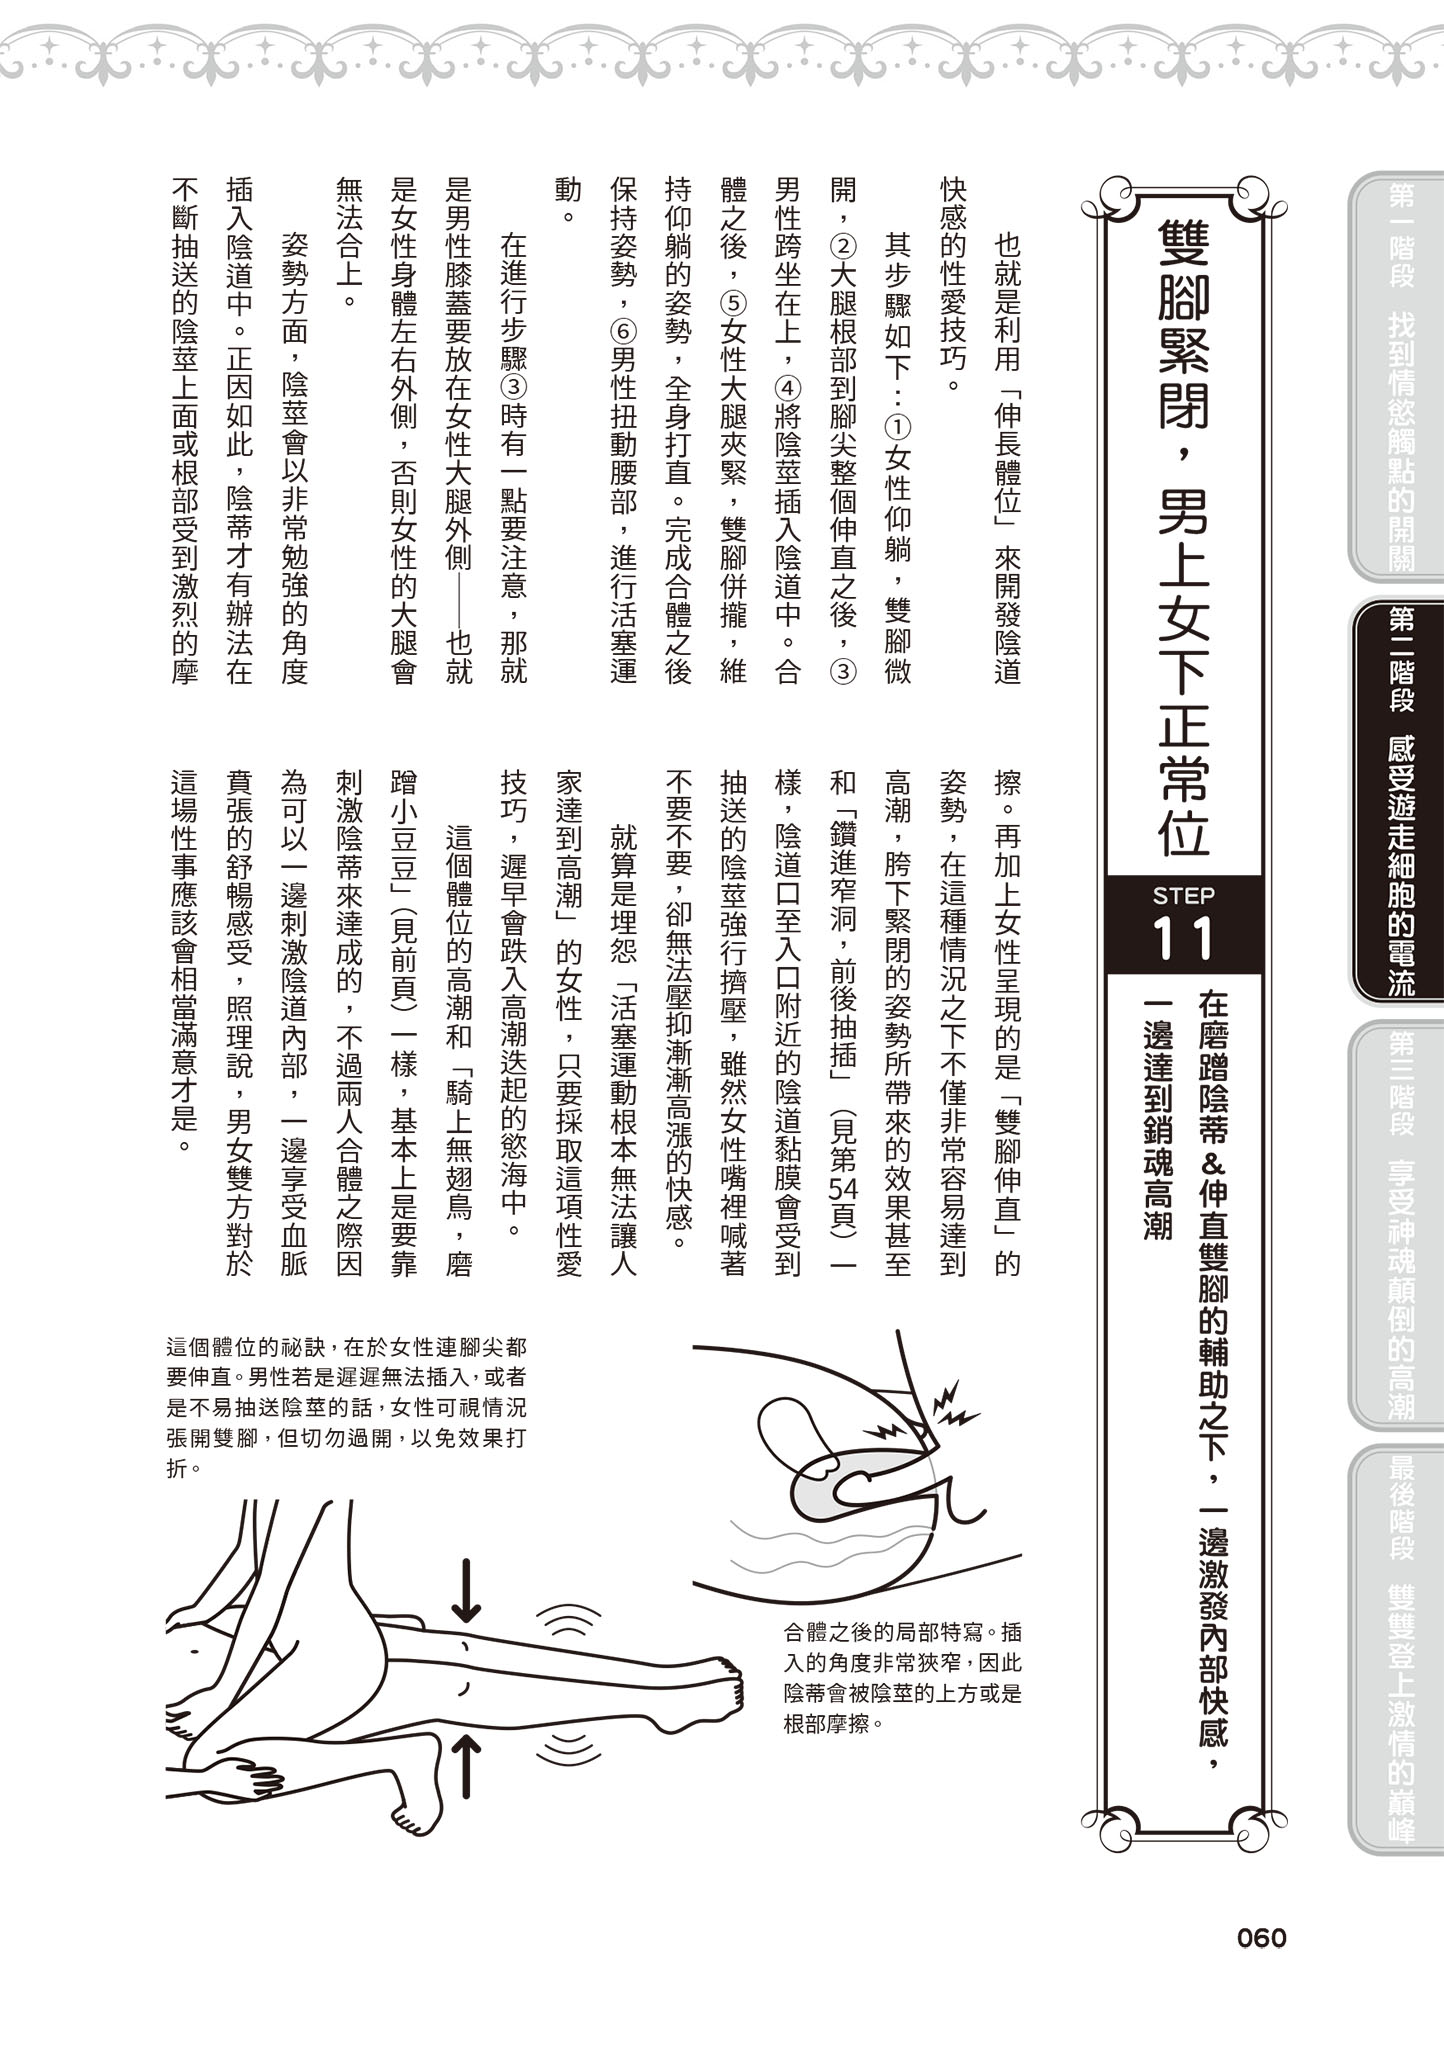 第一階段　找到情慾觸點的開關
第二階段　感受遊走細胞的電流
第三階段　享受神魂顛倒的高潮
最後階段　雙雙登上激情的巔峰
雙腳緊閉，男上女下正常位
STEP
11
在磨蹭陰蒂&伸直雙腳的輔助之下，一邊激發內部快感，
一邊達到銷魂高潮
也就是利用「伸長體位」來開發陰道
快感的性愛技巧。
其步驟如下：①女性仰躺，雙腳微
開，②大腿根部到腳尖整個伸直之後，③
男性跨坐在上，④將陰莖插入陰道中。合
體之後，⑤女性大腿夾緊，雙腳併攏，維
持仰躺的姿勢，全身打直。完成合體之後
保持姿勢，⑥男性扭動腰部，進行活塞運
動。
在進行步驟③時有一點要注意，那就
是男性膝蓋要放在女性大腿外側——也就
是女性身體左右外側，否則女性的大腿會
無法合上。
姿勢方面，陰莖會以非常勉強的角度
插入陰道中。正因如此，陰蒂才有辦法在
不斷抽送的陰莖上面或根部受到激烈的摩
擦。再加上女性呈現的是「雙腳伸直」的
姿勢，在這種情況之下不僅非常容易達到
高潮，胯下緊閉的姿勢所帶來的效果甚至
和「鑽進窄洞，前後抽插」（見第54頁）一
樣，陰道口至入口附近的陰道黏膜會受到
抽送的陰莖強行擠壓，雖然女性嘴裡喊著
不要不要，卻無法壓抑漸漸高漲的快感。
就算是埋怨「活塞運動根本無法讓人
家達到高潮」的女性，只要採取這項性愛
技巧，遲早會跌入高潮迭起的慾海中。
這個體位的高潮和「騎上無翅鳥，磨
蹭小豆豆」（見前頁）一樣，基本上是要靠
刺激陰蒂來達成的，不過兩人合體之際因
為可以一邊刺激陰道內部，一邊享受血脈
賁張的舒暢感受，照理說，男女雙方對於
這場性事應該會相當滿意才是。
這個體位的祕訣，在於女性連腳尖都
要伸直。男性若是遲遲無法插入，或者
是不易抽送陰莖的話，女性可視情況
張開雙腳，但切勿過開，以免效果打
折。
合體之後的局部特寫。插
入的角度非常狹窄，因此
陰蒂會被陰莖的上方或是
根部摩擦。
060